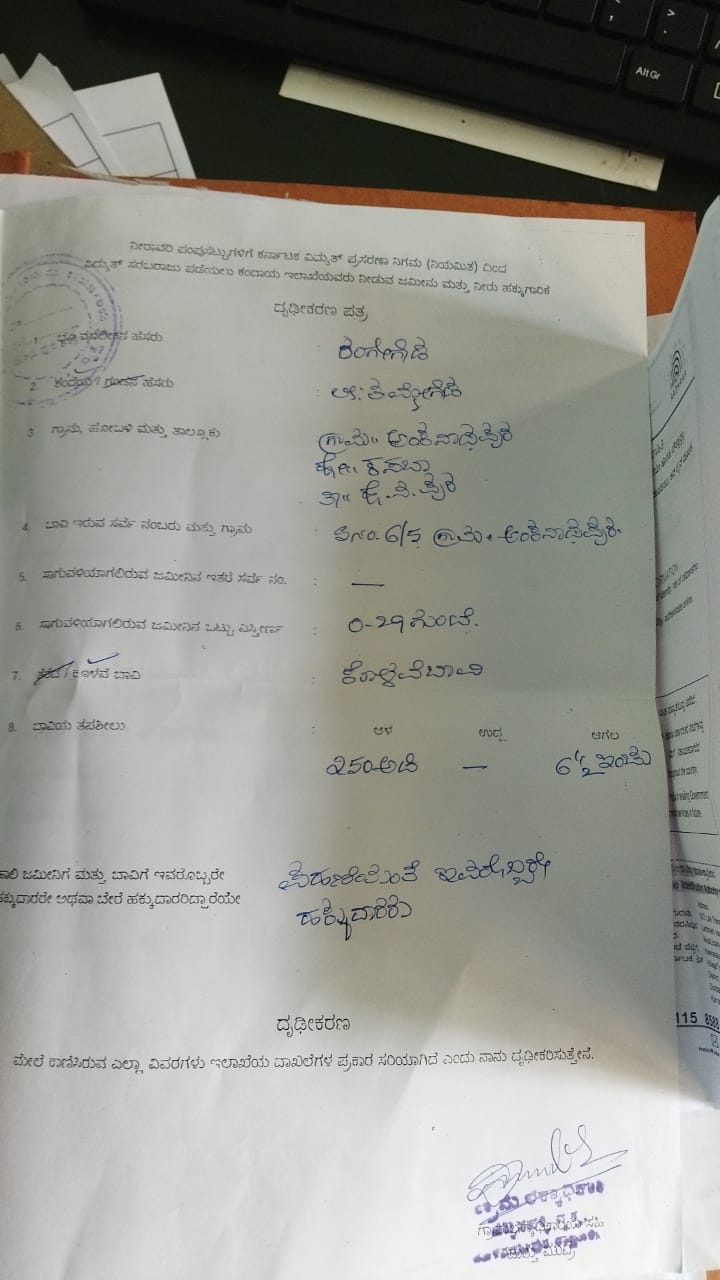 Alt Gr
ನೀರಾವರಿ ಪಂಪುಸೆಟ್ಟುಗಳಿಗೆ ಕರ್ನಾಟಕ ವಿದ್ಯುತ್ ಪ್ರಸರಣಾ ನಿಗಮ (ನಿಯಮಿತ) ದಿಂದ
ವಿದ್ಯುತ್ ಸರಬರಾಜು ಪಡೆಯಲು ಕಂದಾಯ ಇಲಾಖೆಯವರು ನೀಡುವ ಜಮೀನು ಮತ್ತು ನೀರು ಹಕ್ಕುಗಾರಿಕೆ
ದೃಢೀಕರಣ ಪತ್ರ
1. ಭೂ ಮಾಲೀಕನ ಹೆಸರು : ರಂಗೇಗೌಡ
2. ತಂದೆಯ / ಗಂಡನ ಹೆಸರು : ಲೇ:
3. ಗ್ರಾಮ, ಹೋಬಳಿ ಮತ್ತು ತಾಲ್ಲೂಕು ಗ್ರಾಮ॥ ಅಂಕನಾಥಪುರ
ಹೋ॥ ಕಸಬಾ
ತಾ॥ ಹೊ.ನ.ಪುರ
4. ಬಾವಿ ಇರುವ ಸರ್ವೆ ನಂಬರು ಮತ್ತು ಗ್ರಾಮ : Sno. 6/5 ಗ್ರಾಮ ಅಂಕನಾಥಪುರ
5. ಸಾಗುವಳಿಯಾಗಲಿರುವ ಜಮೀನಿನ ಇತರೆ ಸರ್ವೆ ನಂ. : —
6. ಸಾಗುವಳಿಯಾಗಲಿರುವ ಜಮೀನಿನ ಒಟ್ಟು ವಿಸ್ತೀರ್ಣ : 0-29 ಗುಂಟೆ.
7. ತೆರೆದ / ಕೊಳವೆ ಬಾವಿ : ಕೊಳವೆಬಾವಿ
8. ಬಾವಿಯ ತಪಶೀಲು : ಆಳ ಉದ್ದ ಅಗಲ
250 ಅಡಿ — 6 1/2 ಇಂಚು
ಜಮೀನಿಗೆ ಮತ್ತು ಬಾವಿಗೆ ಇವರೊಬ್ಬರೇ ಪಹಣಿಯಂತೆ ಇವರೊಬ್ಬರೇ
ಹಕ್ಕುದಾರರೇ ಅಥವಾ ಬೇರೆ ಹಕ್ಕುದಾರರಿದ್ದಾರೆಯೇ ಹಕ್ಕುದಾರರು
ದೃಢೀಕರಣ
ಮೇಲೆ ಕಾಣಿಸಿರುವ ಎಲ್ಲಾ ವಿವರಗಳು ಇಲಾಖೆಯ ದಾಖಲೆಗಳ ಪ್ರಕಾರ ಸರಿಯಾಗಿದೆ ಎಂದು ನಾನು ದೃಢೀಕರಿಸುತ್ತೇನೆ.
115 8588